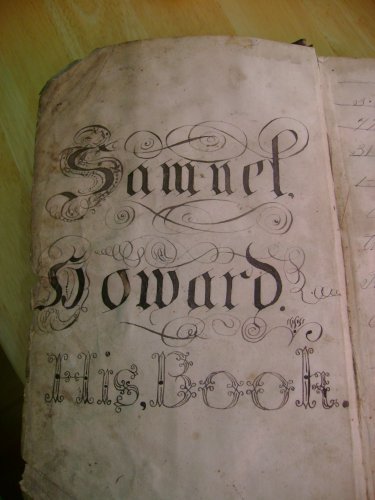 Samuel.
Howard.
His, Book.